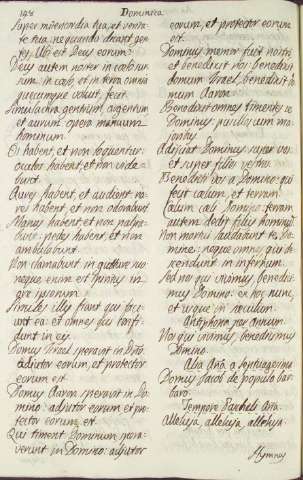 148 Dominica
super misericordia tua, et veri-
te tua, nequando dicant gen-
tes, Ubi est Deus eorum?
Deus autem noster in coelo: om-
nia, in coelo, et in terra omnia
quecumque voluit, fecit.
Simulachra gentium argentum
et aurum, opera manuum
hominum.
Os habent, et non loquentur:
oculos habent, et non vide-
bunt.
Aures habent, et non audient: na-
res habent, et non odorabunt
Manus habent, et non palpa-
bunt: pedes habent, et non
ambulabunt.
Non clamabunt in gutture suo:
neque enim est spiritus in
ore ipsorum.
Similes illis fiant qui faci-
unt ea: et omnes qui confi-
dunt in eis.
Domus Israel speravit in Dño:
adiutor eorum, et protector
eorum est.
Domus Aaron speravit in Do-
mino: adiutor eorum et pro-
tector eorum est.
Qui timent Dominum, spera-
verunt in Domino: adiutor
eorum, et protector eorum
est.
Dominus memor fuit nostri,
et benedixit nos: benedixit
domum Israel, benedixit do-
mum Aaron.
Benedixit omnes timentes se
Dominus, pusillos cum ma-
joribus.
Adijciat Dominus super vos:
et super filios vestros.
Benedicti vos a Domino: qui
fecit coelum, et terram.
Coelum coeli Domino: terram
autem dedit filiis hominum.
Non mortui laudabunt te, Do-
mine: neque omnes qui de-
scendunt in infernum.
Sed nos qui vivimus, benedici-
mus Domino: ex hoc nunc,
et usque in seculum.
Antiphona per annum.
Nos qui vivimus, benedicimus
Domino.
Alia Aña a septuagesima
Domus Jacob de populo bar-
baro.
Tempore Paschali Aña
Alleluja, alleluja, alleluja.
Hymnus